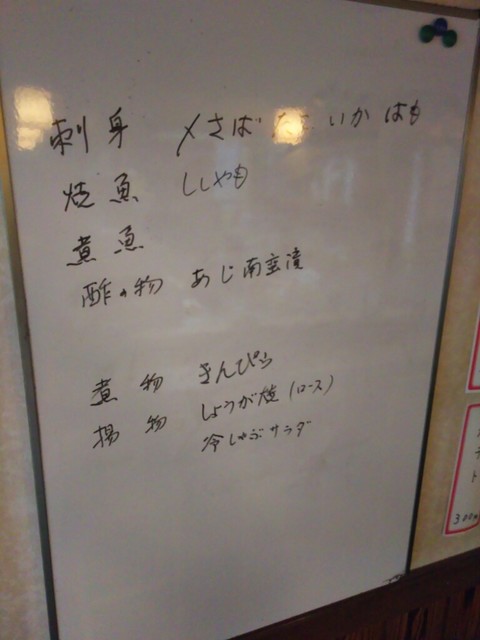 刺身 〆さば いか はも
焼魚 ししゃも
煮魚
酢の物 あじ南蛮漬
煮物 きんぴら
揚物 しょうが焼(ロース)
冷しゃぶサラダ
300